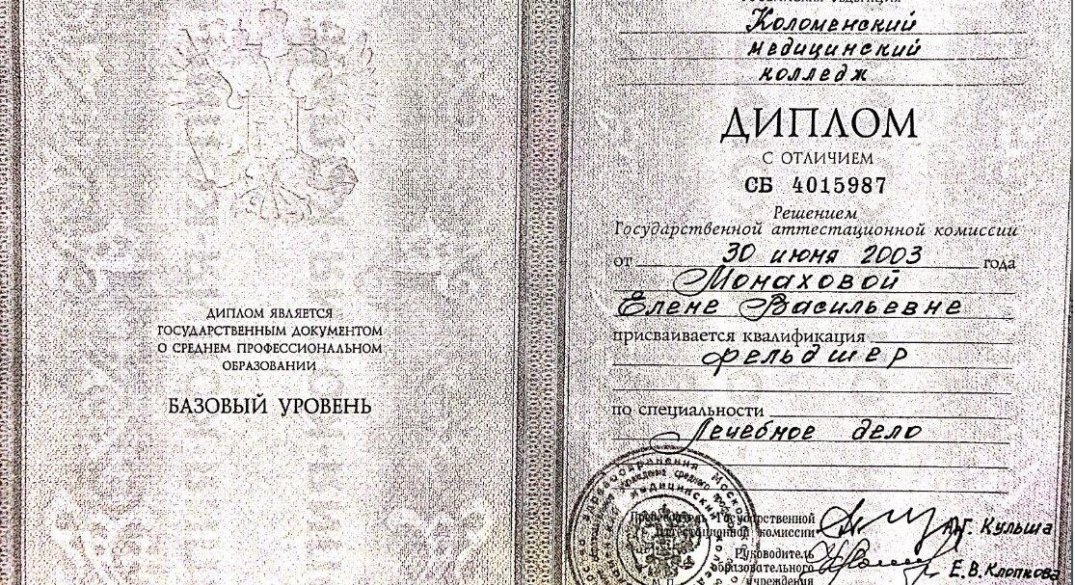 ДИПЛОМ ЯВЛЯЕТСЯ
ГОСУДАРСТВЕННЫМ ДОКУМЕНТОМ
О СРЕДНЕМ ПРОФЕССИОНАЛЬНОМ
ОБРАЗОВАНИИ
БАЗОВЫЙ УРОВЕНЬ
Коломенский
медицинский
колледж
ДИПЛОМ
С ОТЛИЧИЕМ
СБ 4015987
Решением
Государственной аттестационной комиссии
от 30 июня 2003 года
Монаховой
Елене Васильевне
присваивается квалификация
фельдшер
по специальности
Лечебное дело
Государственной
комиссии А.Г. Кульша
Руководитель
образовательного Е.В. Клопкова
учреждения